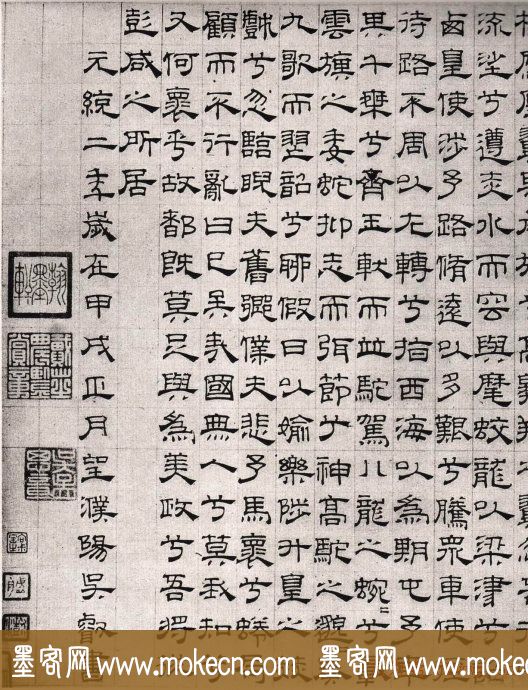 流沙兮遵赤水而容與麾蛟龍以梁津兮詔
西皇使涉予路脩遠以多艱兮騰眾車使
待路不周以左轉兮指西海以為期屯予車
其千乘兮齊玉軑而並馳駕八龍之蜿〻兮載
雲旗之委蛇抑志而弭節兮神高馳之邈
九歌而舞韶兮聊假日以媮樂陟升皇之
戲兮忽臨睨夫舊鄉僕夫悲予馬懷兮蜷局
顧而不行亂曰已矣哉國無人兮莫我知
又何懷乎故都既莫足與為美政兮吾將
彭咸之所居
元統二年歲在甲戌正月望濮陽吳叡書
墨客网 www.mokecn.com 墨客网 www.mokecn.com